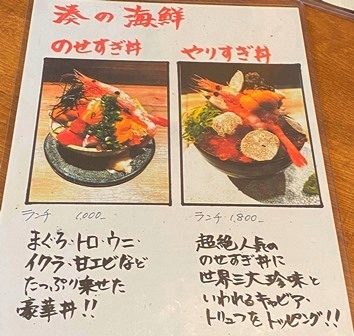 湊の海鮮
のせすぎ丼
やりすぎ丼
ランチ 1,000-
ランチ 1,800-
まぐろ・トロ・ウニ・
イクラ・甘エビなど
たっぷり乗せた
豪華丼!!
超絶人気の
のせすぎ丼に
世界三大珍味と
いわれるキャビア・
トリュフをトッピング!!